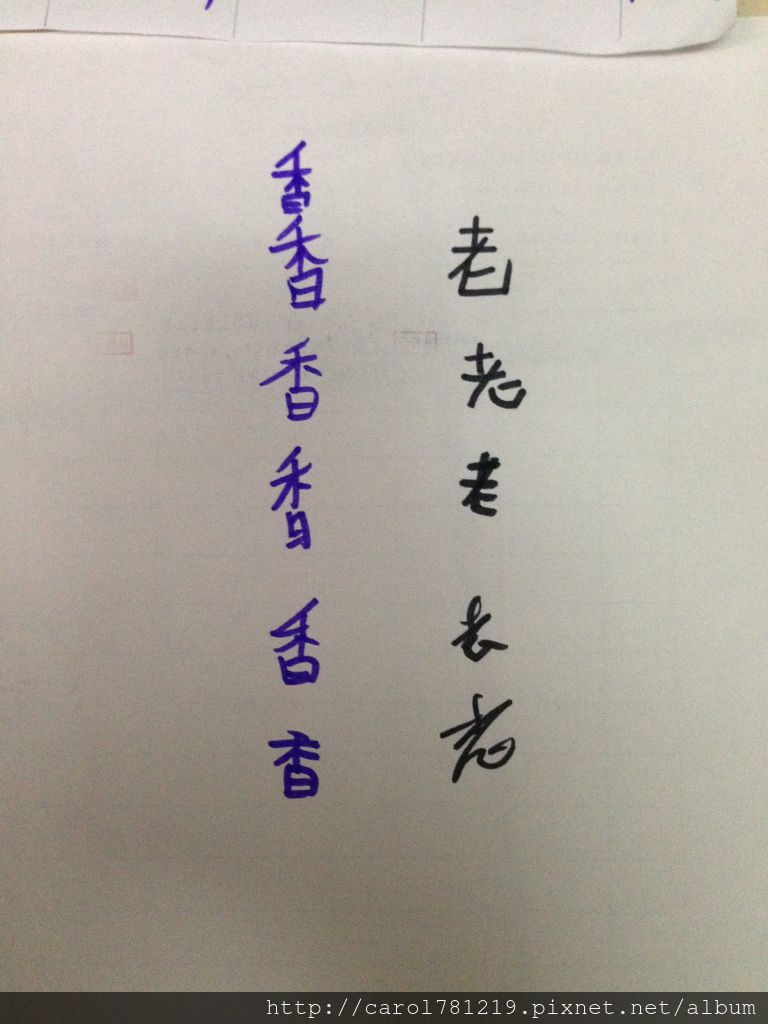 老老老老老
香香香香香香
http://carol781219.pixnet.net/album